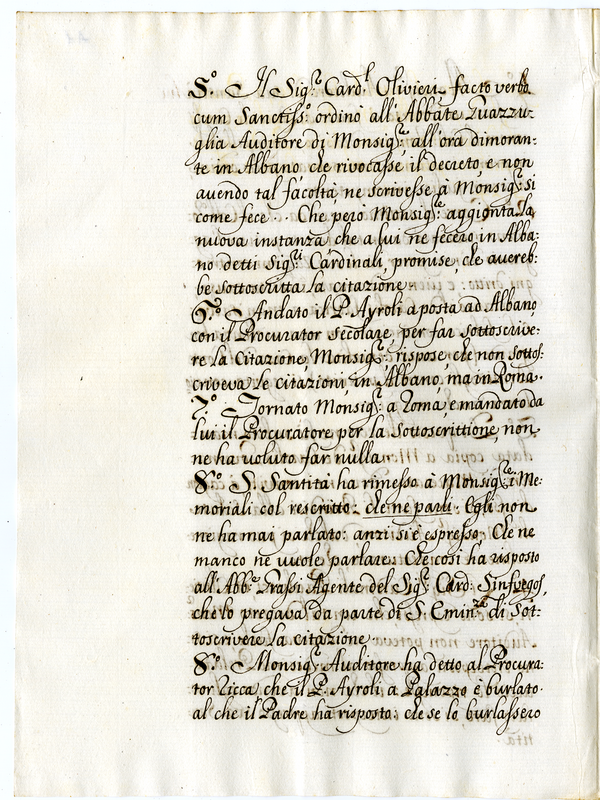 5.º Il Sig.r Card.l Olivieri facto verbo
cum Sanctiss.º ordinò all'Abbate Guazzu-
glia Auditore di Monsig.r: all'ora dimoran:
te in Albano che rivocasse il decreto, e non
auendo tal facoltà, ne scrivesse à Monsig.r: si
come fece.. Che però Monsig.re: aggionta la
nuova instanza, che a lui ne fecero in Alba:
no detti Sig.ri Cardinali, promise, che auereb:
be sottoscritta la citazione
6.º Andato il P. Ayroli aposta ad Albano
con il Procurator secolare, per far sottoscrive:
re la Citazione, Monsig.r: rispose, che non sottos:
criveva le citazioni, in Albano, ma in Roma.
7.º Tornato Monsig.r: a Roma, e mandato da
lui il Procuratore per la Sottoscrittione, non
ne ha voluto far nulla
8.º S. Santità ha rimesso à Monsig.re: i Me:
moriali col rescritto: che ne parli: Egli non
ne ha mai parlato: anzi si è espresso: Che ne
manco nè vuole parlare. Che così ha risposto
all'Abb.e Grassi Agente del Sig.r Card: Sinfuegos,
che lo pregava da parte di S. Emin.za di Sot:
toscrivere la citazione.
S.º Monsig.r Auditore ha detto al Procura:
tor Zicca che il P. Ayroli a Palazzo è burlato.
al che il Padre ha risposto: che se lo burlassero